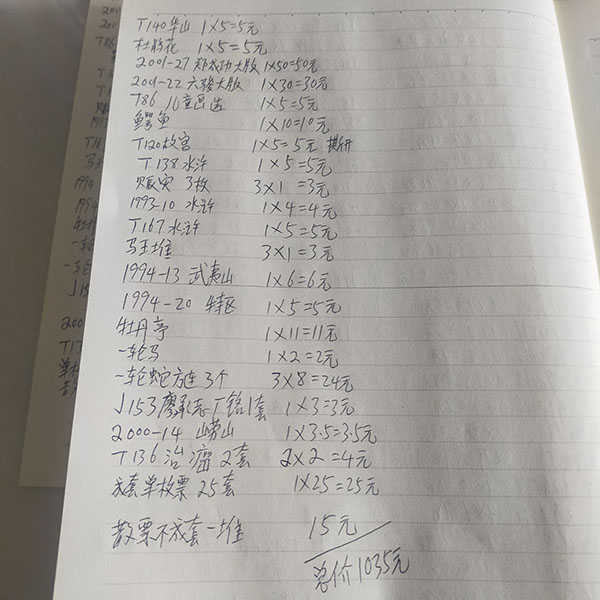 T140华山 1×5=5元
杜鹃花 1×5=5元
2001-27 郑成功大版 1×50=50元
2001-22 六骏大版 1×30=30元
T86 儿童画选 1×5=5元
鳄鱼 1×10=10元
T120故宫 1×5=5元 撕开
T138水浒 1×5=5元
贩实 3枚 3×1=3元
1993-10 水浒 1×4=4元
T167水浒 1×5=5元
马王堆 3×1=3元
1994-13 武夷山 1×6=6元
1994-20 特区 1×5=5元
牡丹亭 1×11=11元
一轮马 1×2=2元
一轮蛇方连3个 3×8=24元
J153廖承志厂铭1套 1×3=3元
2000-14 崂山 1×3.5=3.5元
T136 治癌2套 2×2=4元
成套单枚票25套 1×25=25元
散票不成套一堆 15元
总价1035元